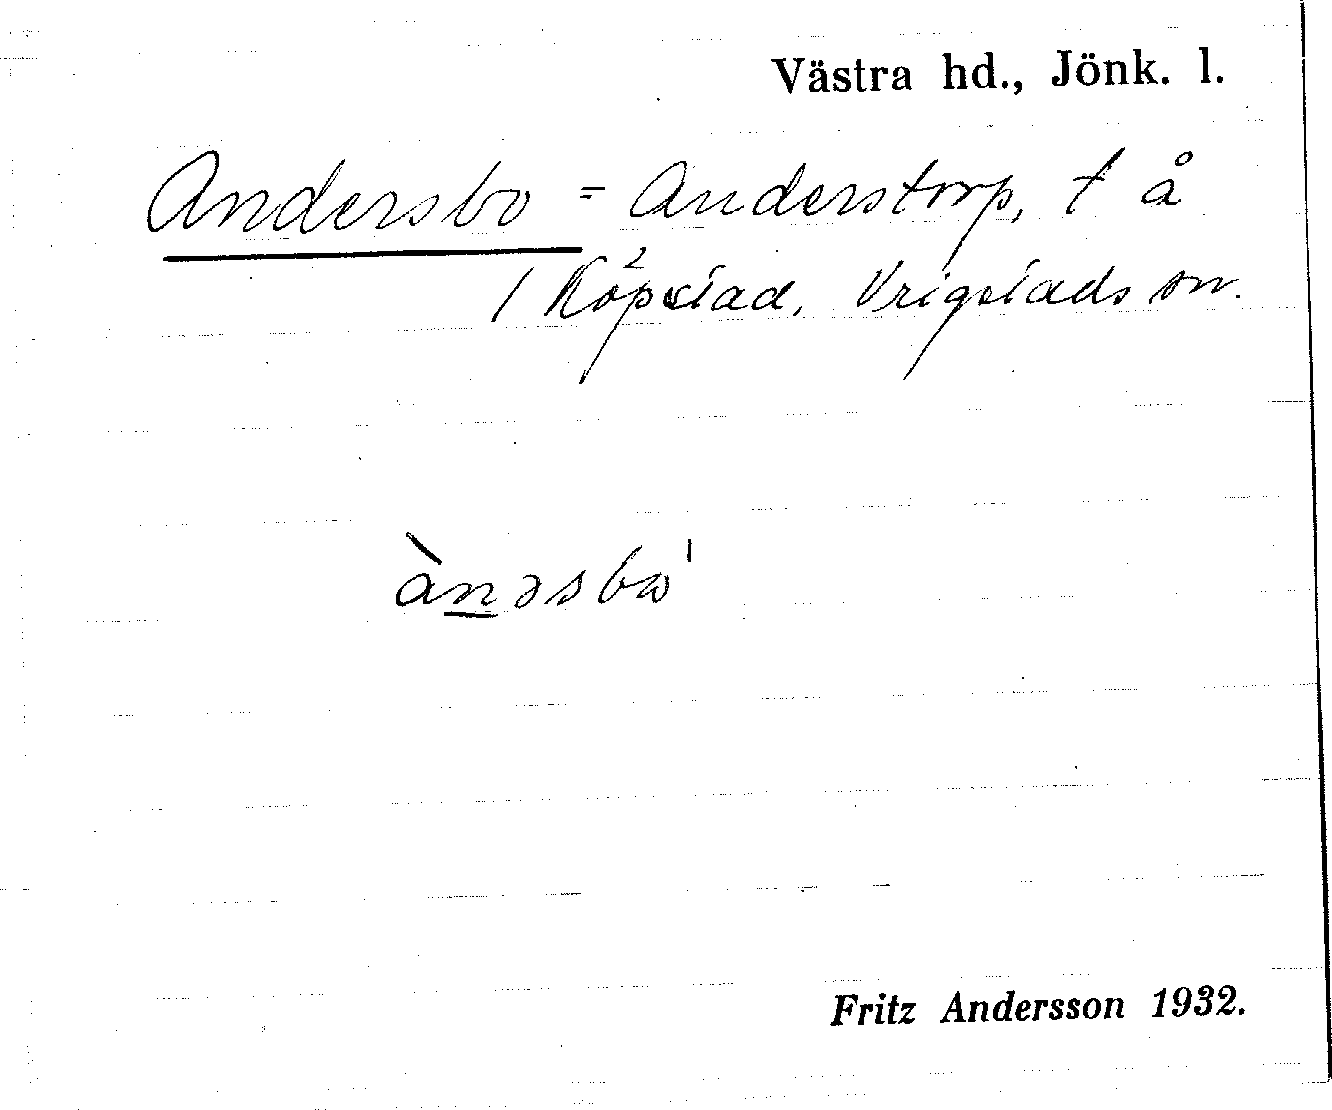 Västra hd., Jönk. l.
Andersbo = Anderstorp, t å
1 Köpstad, Vrigstads sn.
ànəsbω'
Fritz Andersson 1932.